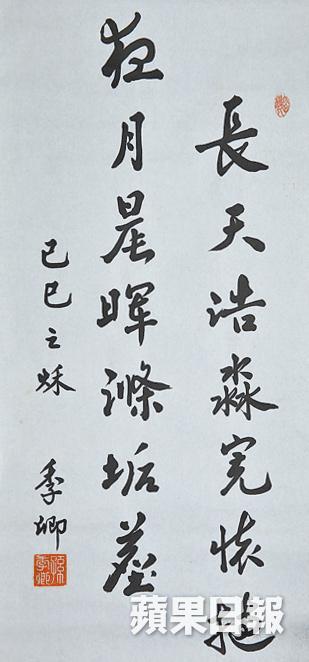 長天浩淼寬懷
夜月晨暉滌垢塵
己巳之秋
季卿
蘋果日報